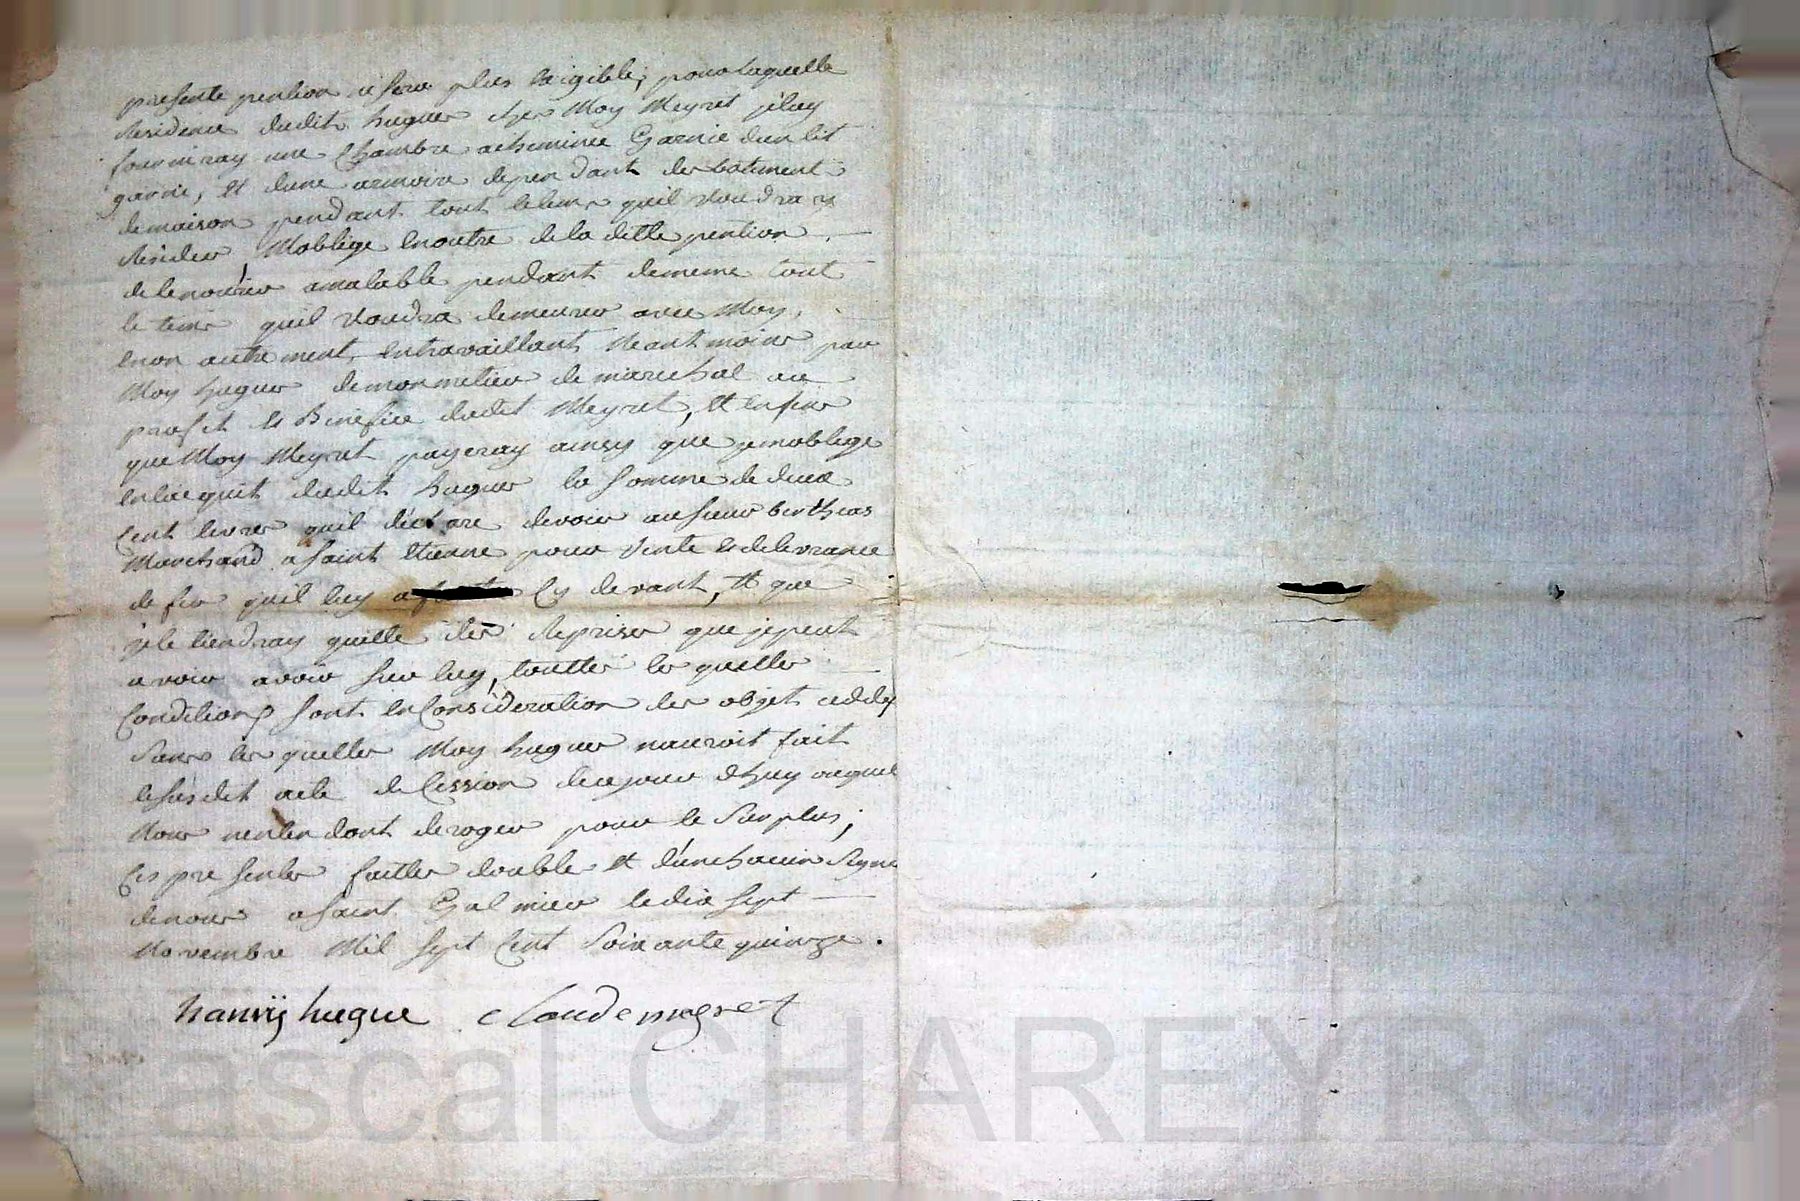 presente pention ni sera plus exigible; pour laquelle
residence dudit hugues chez Moy Meyret je luy
fourniray une Chambre acheminée Garnie dun lit
garni, et dune armoire dependant des batiment
demaison pendant tout letems quil voudra y
resider, Moblige enoutre dela ditte pention
delenourir amatable pendant dememe tout
le tems quil voudra demeurer avec Moy,
enon autrement, entravaillant Neantmoins par
Moy hugues demonmetier de marechal au
profit et Benefice dudit Meyret, et enfin
que Moy Meyret payeray ainsy que jemoblige
enlacquit dudit hugues la somme de deux
Cent livres quil déclare devoir ausieur berthias
Marchand a saint Etienne pour vente et delivrance
de fer quil luy a Cy devant, et que
jele tiendray quitte des reprises que jepeut
avoir avoir sur luy, touttes les quelles
Conditions sont en Consideration des objets ceddés
sans les quelles Moy hugues nauroit fait
lesusdit acte de Cession decejour dhuy auquel
Nous nentendont deroger pour le Surplus;
Ces presentes faittes double et dunchacun Signé
denous a saint Galmier ledix sept
Novembre Mil sept Cent Soixante quinze.
hanrÿ hugue claude meyret
ascal CHAREYRON